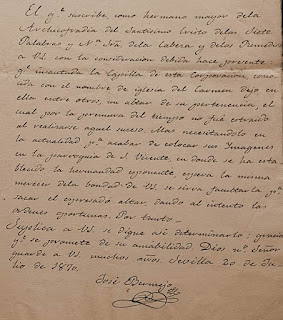 El q.e suscribe, como hermano mayor dela
Archicofradía del Santísimo Cristo delas Siete
Palabras y N.a Sra. dela Cabeza y delos Remedios
a V.S. con la consideracion debida hace presente
q.e incautada la Capilla de esta Corporacion, cono-
cida con el nombre de iglesia del Carmen dejo en
ella entre otros, un altar de su pertenencia, el
cual por la premura del tiempo no fué extraido
al realizarse aquel suceso. Mas necesitandolo en
la actualidad p.a acabar de colocar sus Imagenes
en la parroquia de S. Vicente, en donde se ha esta-
blecido la hermandad esponente, espera la misma
merecer dela bondad de V.S. se sirva facultarla p.a
sacar el espresado altar, dando al intento las
ordenes oportunas. Por tanto =
Suplica a V.S. se digne asi determinarlo; gracia
q.e se promete de su amabilidad. Dios n.o Señor
guarde a V.S. muchos años. Sevilla 20 de Ju-
lio de 1870.
José Bermejo